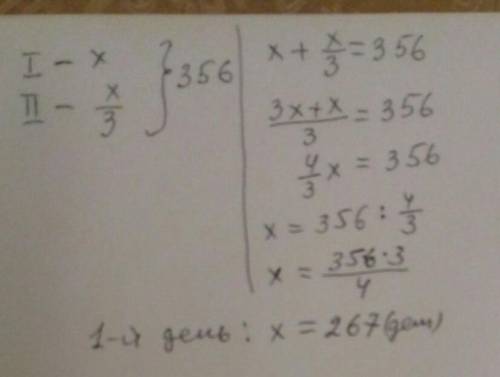 I - x
II - x/3 } 356
x + x/3 = 356
3x+x/3 = 356
4/3 x = 356
x = 356 : 4/3
x = 356·3/4
1-й день: x = 267 (дет)